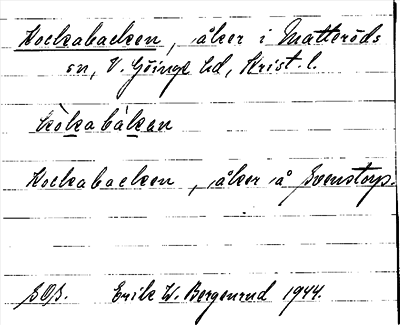 Kockabacken, åker i Matteröds
sn, V. Göinge hd, Krist. l.
kòkabàkan
Kockabacken, åker å Svenstorp.
SOB. Erik W. Bergenrud 1944.